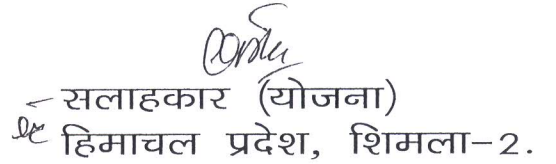 सलाहकार (योजना)
हिमाचल प्रदेश, शिमला-2.